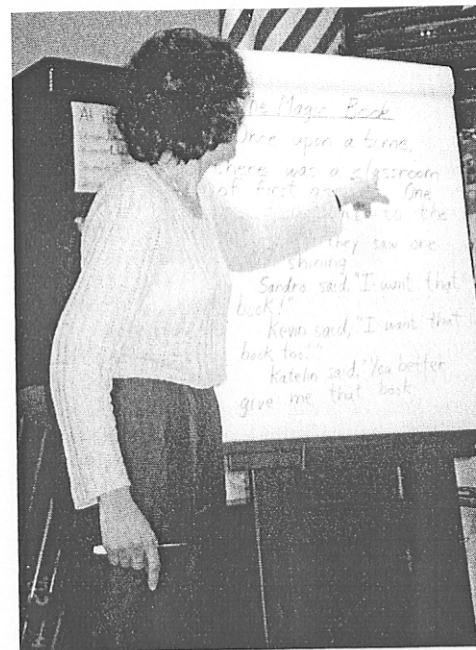 The Magic Book
Once upon a time,
there was a classroom
of first One
to the
They saw one
shining
Sandra said, "I want that
book!"
Kevin said, "I want that
book too!"
Katelin said, "You better
give me that book